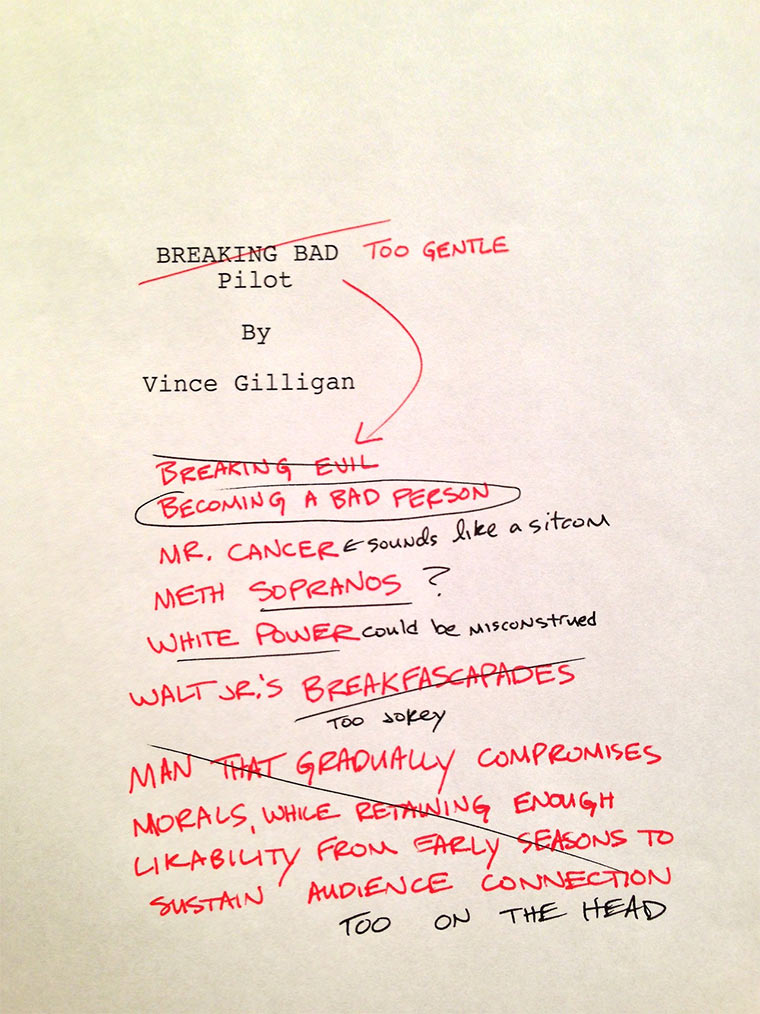 BREAKING BAD TOO GENTLE
Pilot
By
Vince Gilligan
BREAKING EVIL
BECOMING A BAD PERSON
MR. CANCER sounds like a sitcom
METH SOPRANOS ?
WHITE POWER could be misconstrued
WALT JR.'S BREAKFASCAPADES
TOO JOKEY
MAN THAT GRADUALLY COMPROMISES
MORALS, WHILE RETAINING ENOUGH
LIKABILITY FROM EARLY SEASONS TO
SUSTAIN AUDIENCE CONNECTION
TOO ON THE HEAD